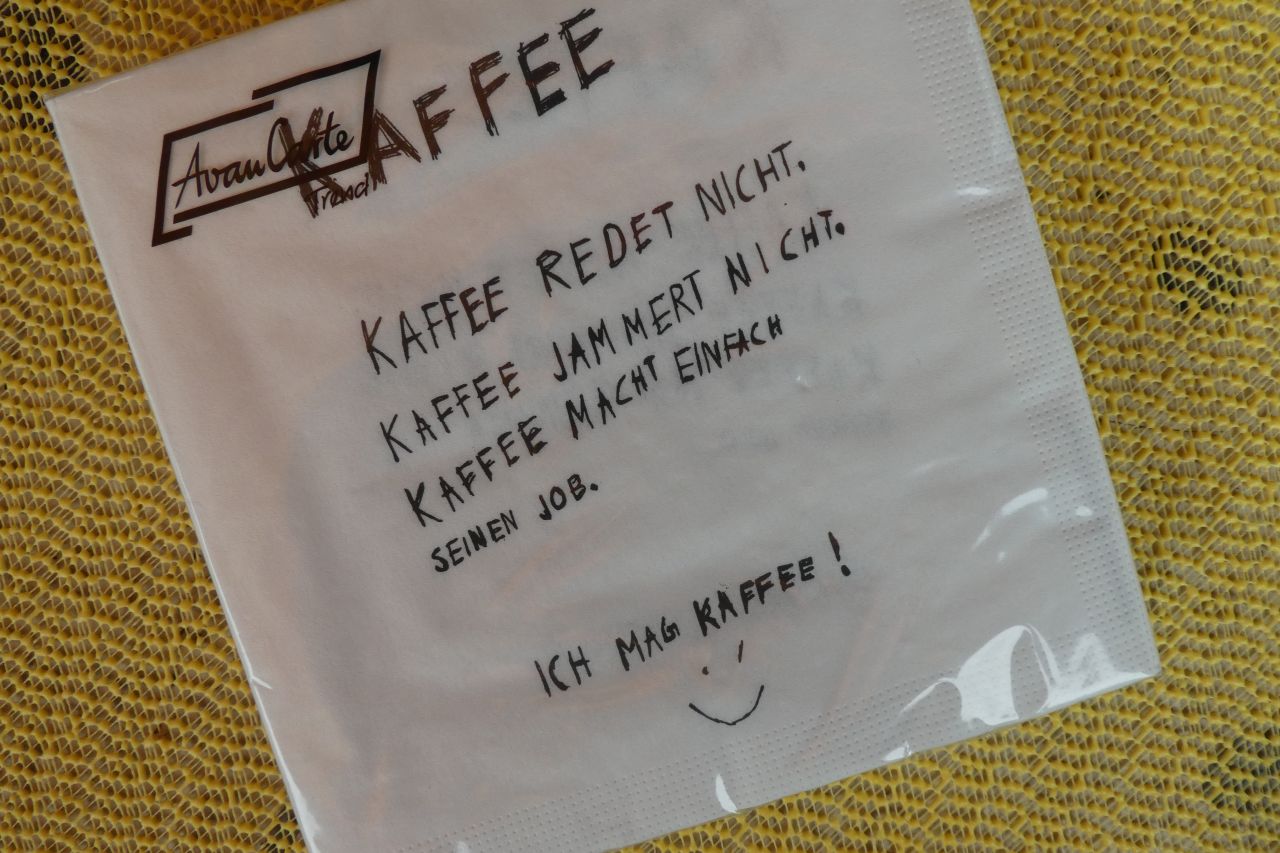 KAFFEE
AvanCarte
Trend
KAFFEE REDET NICHT.
KAFFEE JAMMERT NICHT.
KAFFEE MACHT EINFACH
SEINEN JOB.
ICH MAG KAFFEE!